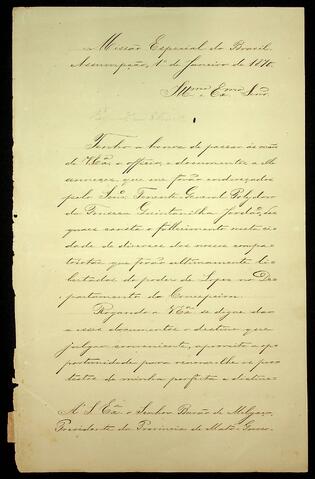 Missão Especial do Brasil.
Assumpção, 1º de Janeiro de 1870.
Illmo e Exmo Senr.
Tenho a honra de passar ás mãos
de VExa o officio, e documentos
annexos, que me forão endereçados
pelo Senr. Tenente General Polydoro
da Fonseca Quintanilha Jordão, dos
quaes consta o fallecimento
de diversos dos nossos compa-
triotas que forão ultimamente li-
bertados do poder de Lopes no De-
partamento da Conceipcion.
Rogando a VExa se digne dar
a esses documentos o destino que
julgar conveniente, aproveito a op-
portunidade para renovar-lhe os pro-
testos de minha perfeita e distinc-
A' S. Exa o Senhor Barão de Melgaço,
Presidente da Provincia de Mato-Grosso.